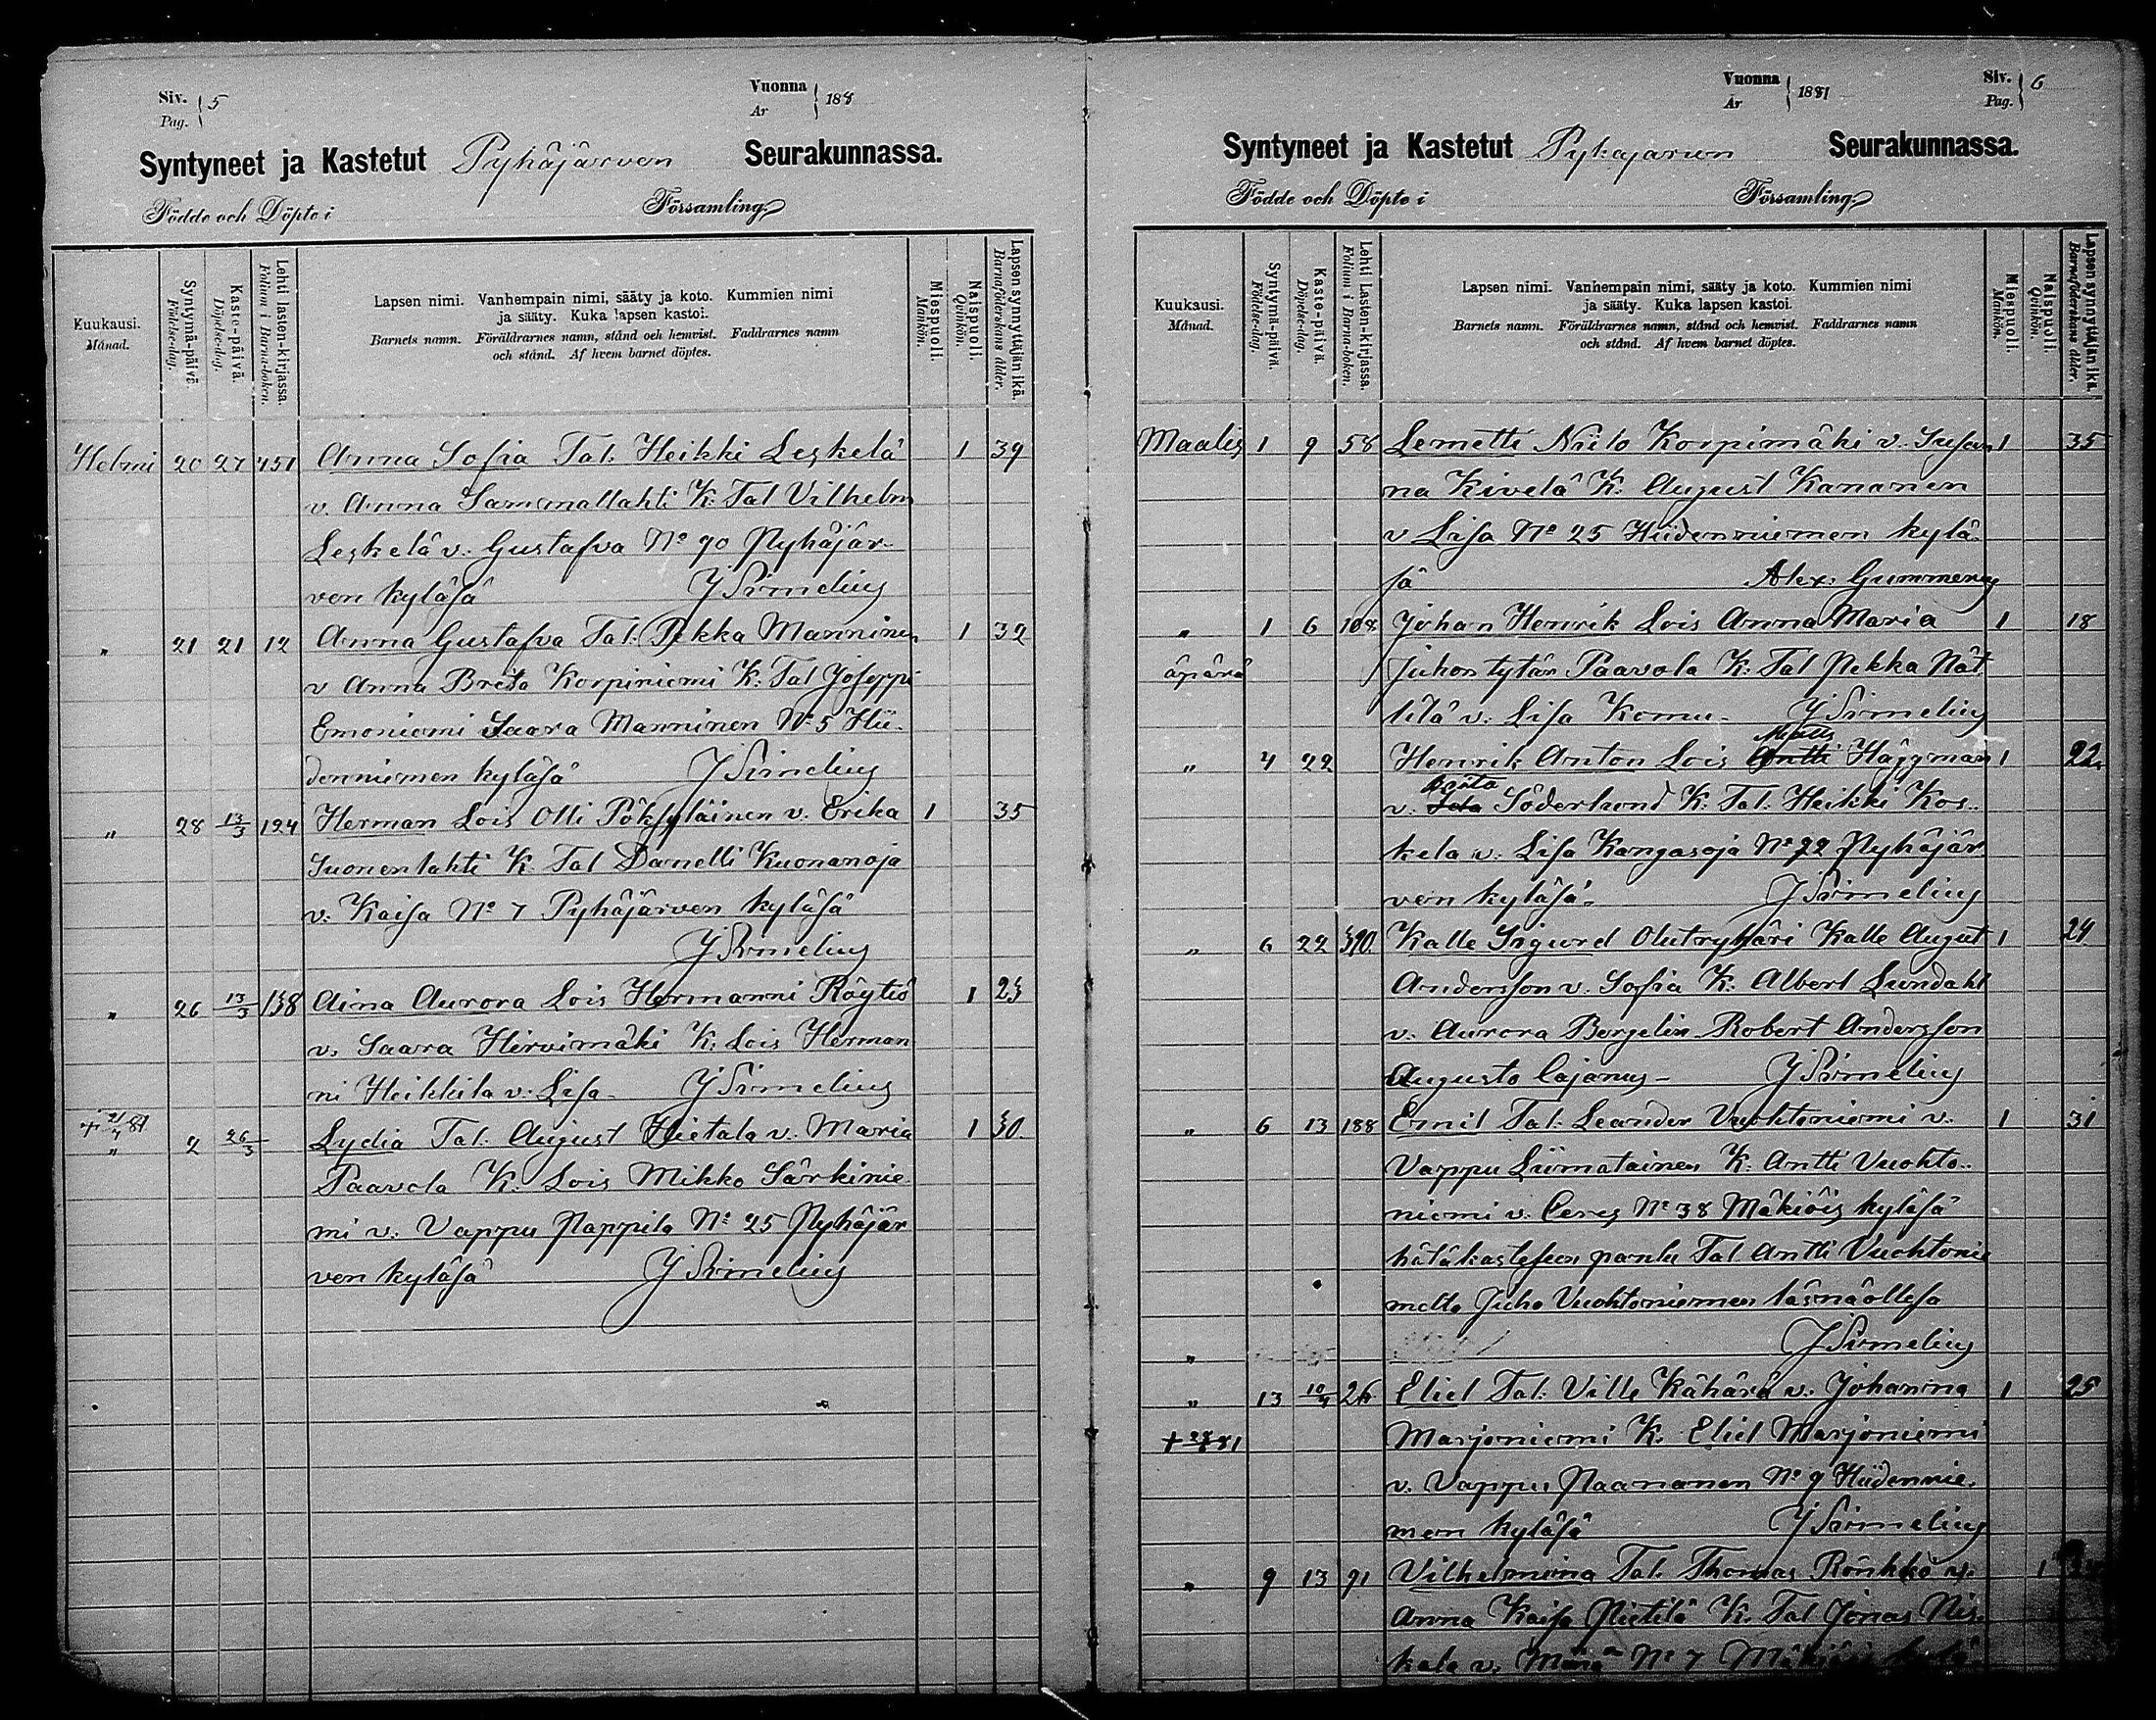 Siv. 5
Pag.
Vuonna
År 188
Syntyneet ja Kastetut Pyhäjärven Seurakunnassa.
Födde och Döpte i Församling.
Kuukausi. Månad.
Syntymä-päivä. Födelse-dag.
Kaste-päivä. Döpelse-dag.
Lehti lasten-kirjassa. Folium i Barna-boken.
Lapsen nimi. Vanhempain nimi, sääty ja koto. Kummien nimi
ja sääty. Kuka lapsen kastoi.
Barnets namn. Föräldrarnes namn, stånd och hemvist. Faddrarnes namn
och stånd. Af hvem barnet döptes.
Miespuoli. Mankön.
Naispuoli. Qvinkön.
Lapsen synnyttäjän ikä. Barnaföderskans ålder.
Helmi 20 27 151 Anna Sofia Tal. Heikki Leskelä 1 39
v. Anna Sammallahti K: Tal Vilhelm
Leskelä v. Gustafva No 90 Pyhäjär-
ven kyläsä J Simelius
" 21 21 12 Anna Gustafva Tal: Pekka Manninen 1 32
v Anna Breta Korpiniemi K: Tal Joseppi
Emoniemi Saara Manninen No 5 Hii-
denniemen kyläsä J Simelius
" 28 13/3 124 Herman Lois Olli Pöksyläinen v. Erika 1 35
Suonenlahti K Tal Danelli Kuonanoja
v: Kaisa No 7 Pyhäjärven kyläsä
J Simelius
" 26 13/3 138 Aina Aurora Lois Hermanni Röytiö 1 23
v: Saara Hirvimäki K: Lois Herman
ni Heikkila v: Lisa - J Simelius
" 2 26/3 Lydia Tal: August Hietala v: Maria 1 30
Paavola K: Lois Mikko Särkinie
mi v: Vappu Pappila No 25 Pyhäjär
ven kyläsä J Simelius
Vuonna
År 1881
Siv. 6
Pag.
Syntyneet ja Kastetut Pyhajarven Seurakunnassa.
Födde och Döpte i Församling.
Kuukausi. Månad.
Syntymä-päivä. Födelse-dag.
Kaste-päivä. Döpelse-dag.
Lehti Lasten-kirjassa. Folium i Barna-boken.
Lapsen nimi. Vanhempain nimi, sääty ja koto. Kummien nimi
ja sääty. Kuka lapsen kastoi.
Barnets namn. Föräldrarnes namn, stånd och hemvist. Faddrarnes namn
och stånd. Af hvem barnet döptes.
Miespuoli. Mankön.
Naispuoli. Qvinkön.
Lapsen synnyttäjän ikä. Barnaföderskans ålder.
Maalis 1 9 58 Lemetti Niilo Korpimäki v. Susan 1 35
na Kivelä K: August Kananen
v Lisa No 25 Hiidenniemen kylä
sä Alex: Gummerus
" 1 6 108 Johan Henrik Lois Anna Maria 1 18
äpärä Juhon tytär Paavola K: Tal Pekka Nät
tilä v: Lisa Komu - J Simelius
Matts
" 4 22 Henrik Anton Lois Antti Häggman 1 22
Brita
v: Söderlund K: Tal: Heikki Kos-
kela v: Lisa Kangasoja No 72 Pyhäjär
ven kyläsä. J Simelius
" 6 22 390 Kalle Sigurd Olutryhäri Kalle August 1 24
Andersson v. Sofia K: Albert Lundahl
v: Aurora Bergelin Robert Andersson
Augusta Cajanus - J Simelius
" 6 13 188 Emil Tal: Leander Vuohtoniemi v: 1 31
Vappu Liimatainen K: Antti Vuohto-
niemi v: Ceres No 38 Mäkiöis kyläsä
hätäkasteseen pantu Tal Antti Vuohtonie
melta Juho Vuohtoniemen läsnäollesa
" J Simelius
" 13 10/4 26 Eliel Tal: Ville Kähärä v: Johanna 1 25
Marjoniemi K: Eliel Marjoniemi
v: Vappu Paananen No 9 Hiidennie-
men kyläsä J Simelius
" 9 13 91 Vilhelmina Tal. Thomas Rönkkö v: 1
Anna Kaisa Pietilä K: Tal Jonas Nis-
kala v: No 7